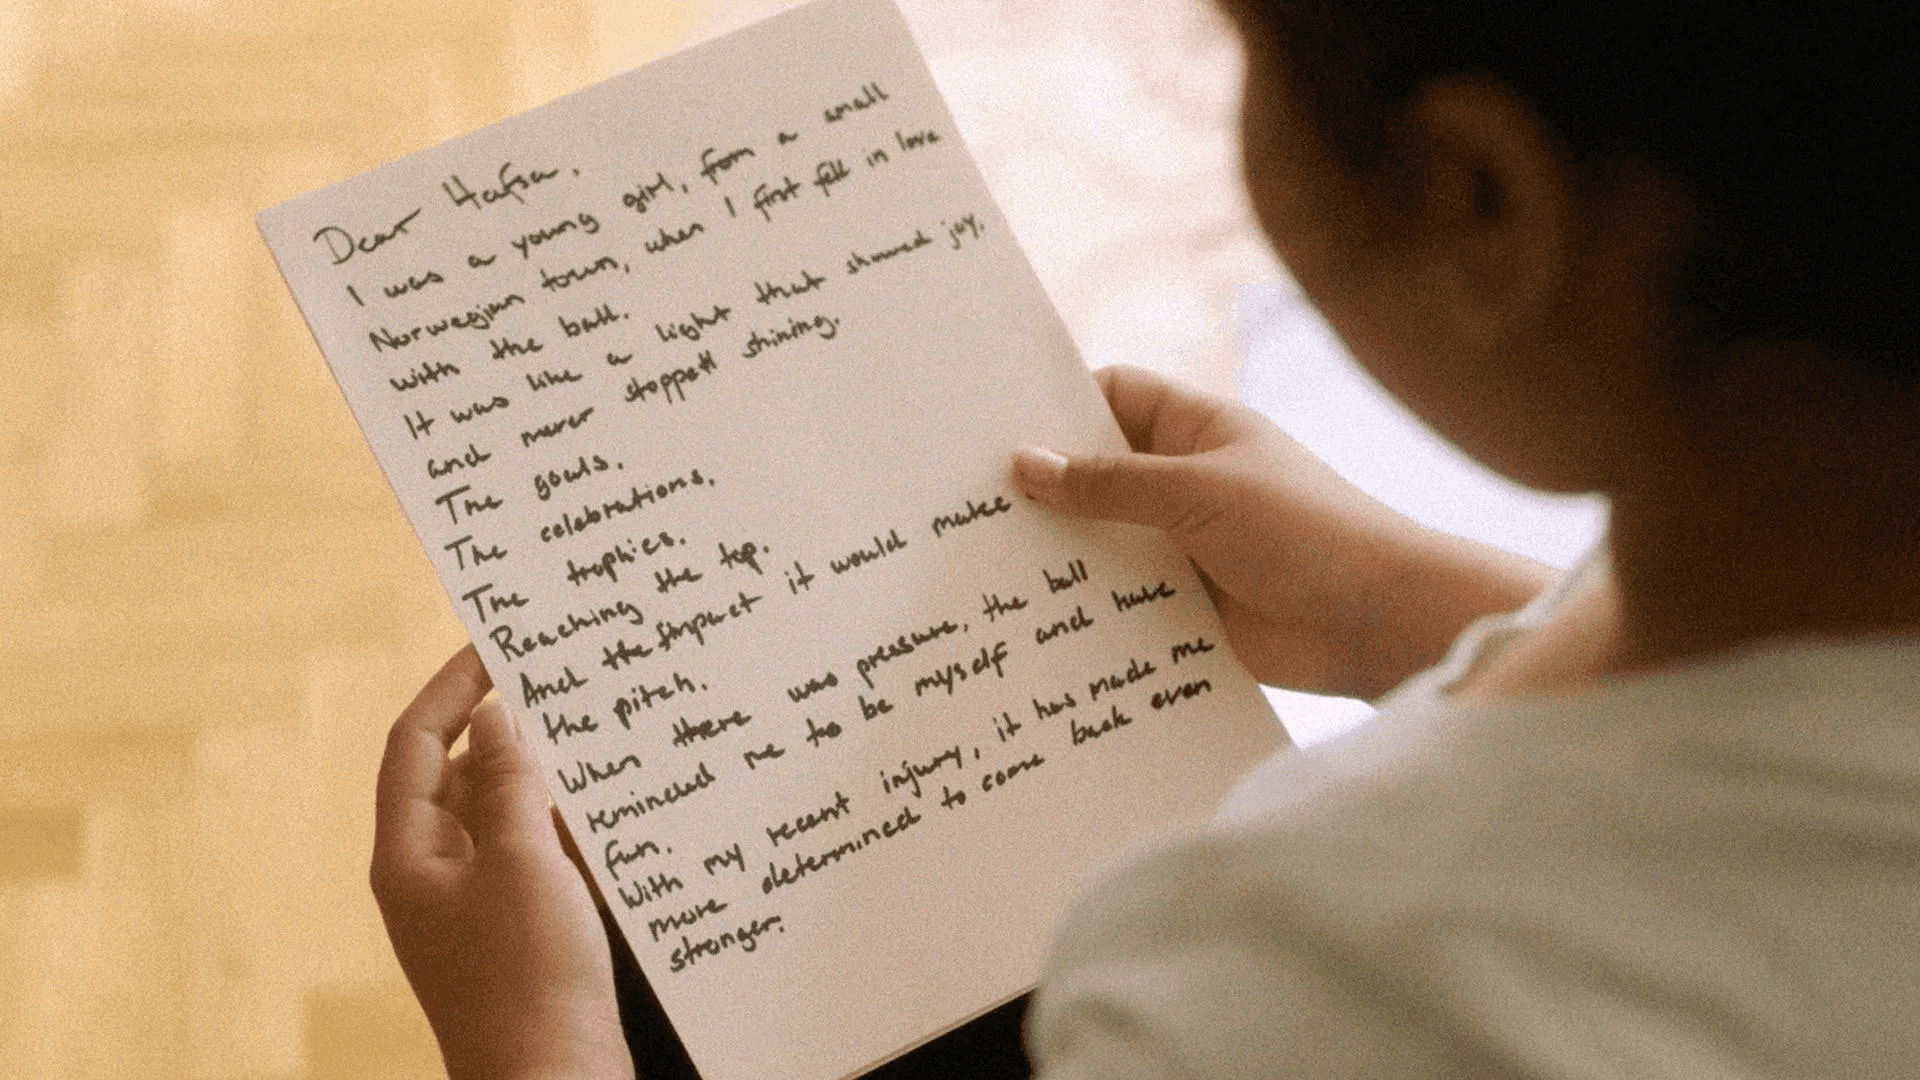 Dear Hafsa,
I was a young girl, from a small
Norwegian town, when I first fell in love
with the ball.
It was like a light that showed joy,
and never stopped shining.
The goals.
The celebrations.
The trophies.
Reaching the top.
And the impact it would make
the pitch.
When there was pressure, the ball
reminded me to be myself and have
fun.
With my recent injury, it has made me
more determined to come back even
stronger.